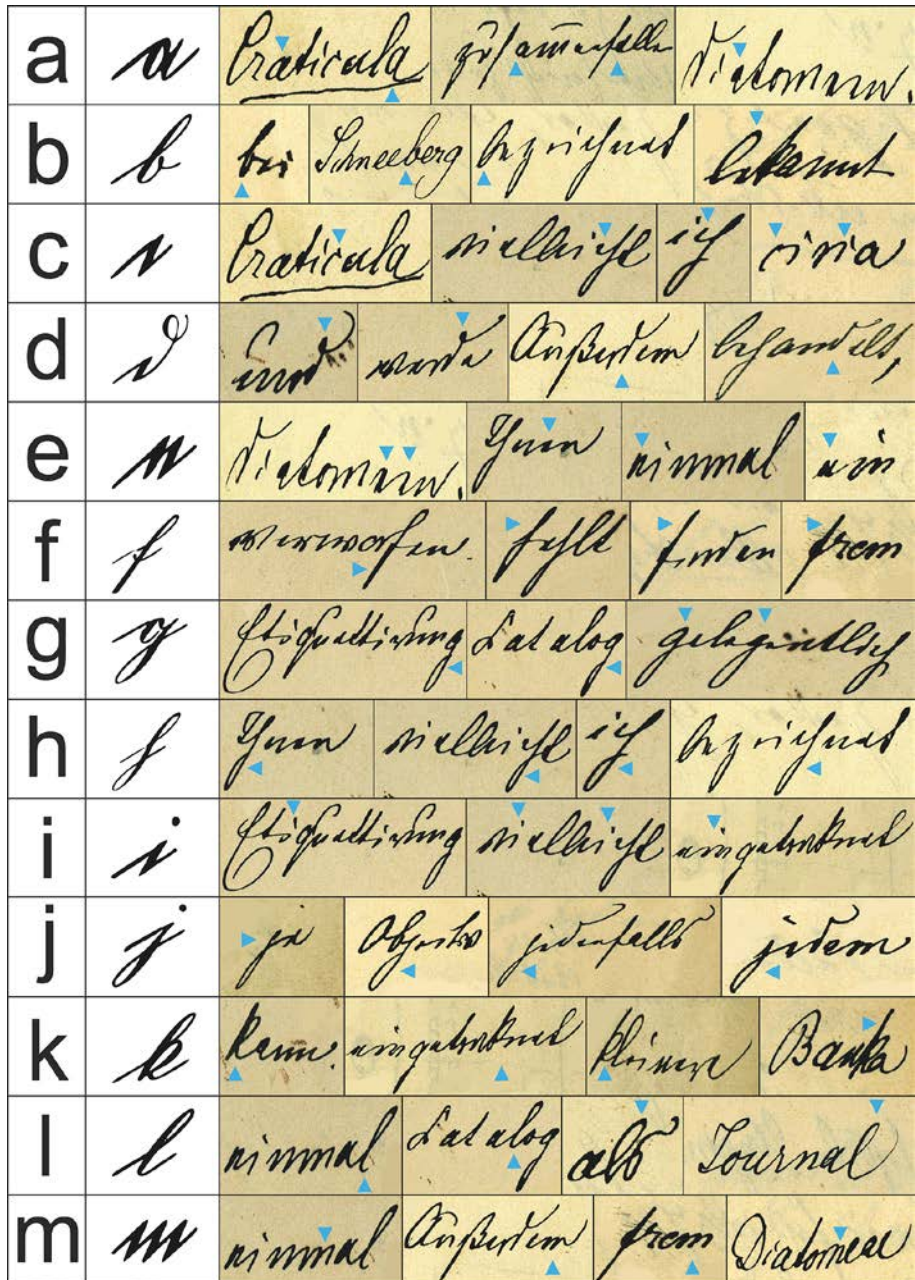 a a Craticula zusam̄enfalle Diatomeen.
b b bei Schneeberg bezeichnet bekannt
c c Craticula vielleicht ich circa
d d und werde Außerdem behandelt,
e e Diatomeen. Ihnen einmal ein
f f verworfen. fehlt finden frem
g g Etiquettirung Catalog gelegentlich
h h Ihnen vielleicht ich bezeichnet
i i Etiquettirung vielleicht eingetroknet
j j ja jedenfalls jedem
k k kann. eingetroknet kleinere Banka
l l einmal Catalog als Journal
m m einmal Außerdem frem Diatomeae